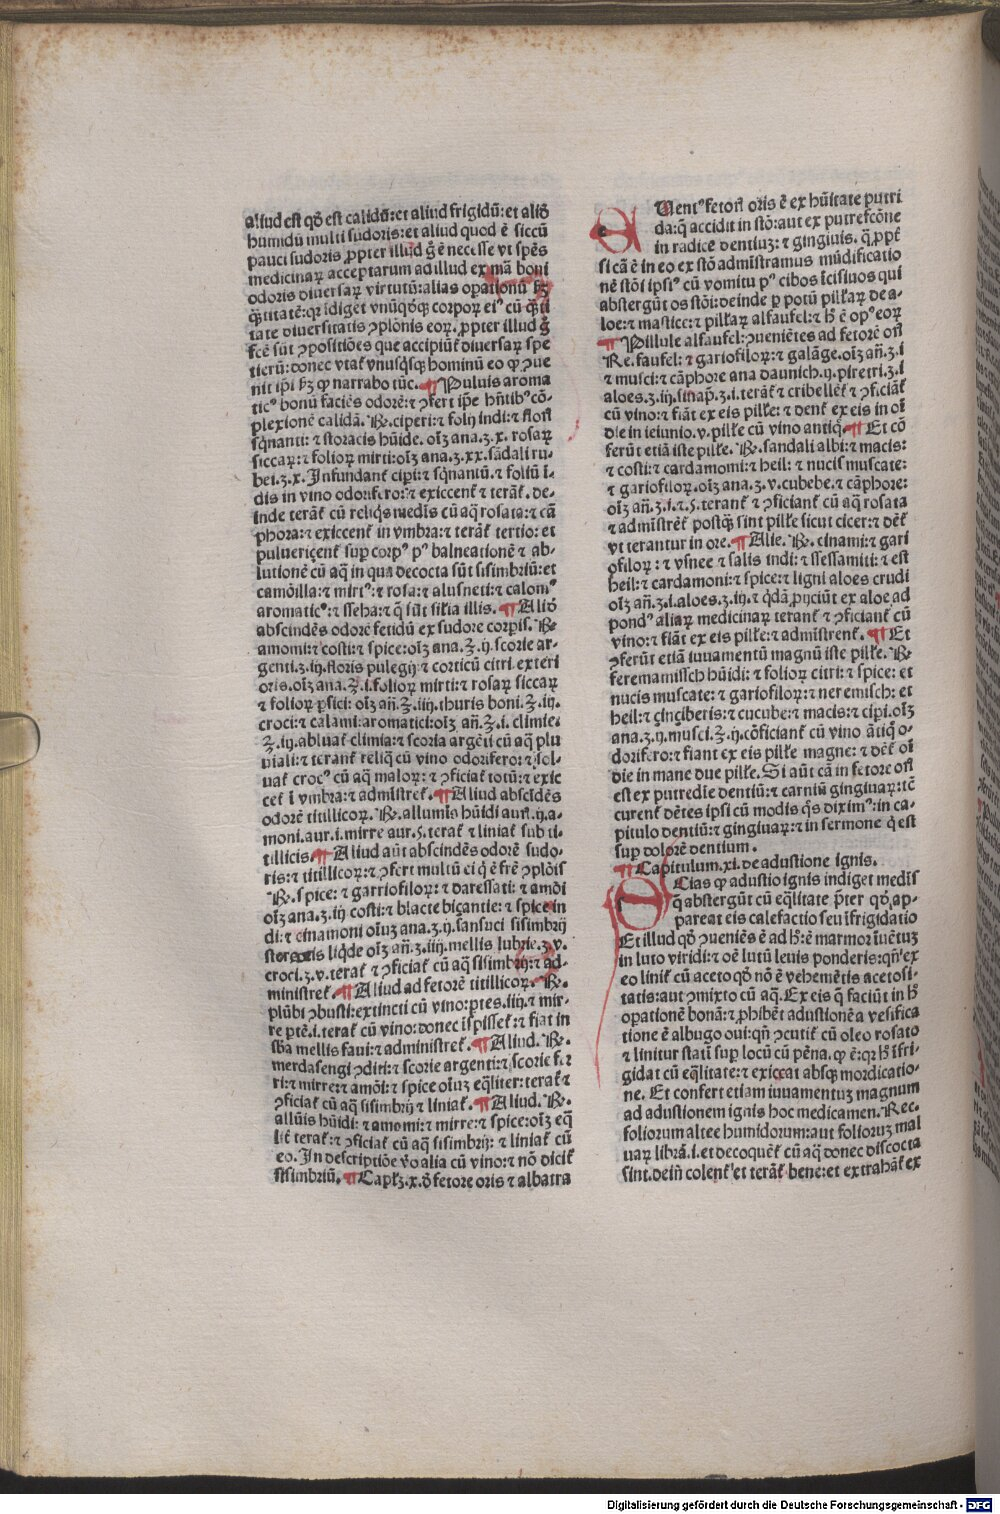 aliud est qđ est calidū: et aliud frigidū: et aliđ
humidū multi sudoris: et aliud quod ē siccū
pauci sudoris ꝓpter illud ḡ ē necesse vt spēs
medicinaꝝ acceptarum ad illud ex mā boni
odoris diuersaꝝ virtutū: alias oꝑationū hꝫ
q̄titatē: qꝛ īdiget vnūqđqꝫ corpoꝝ eiꝰ cū q̄ti
tate diuersitatis ꝯplōnis eoꝝ. ꝓpter illud ḡ
fcē sūt ꝯpositiōes que accipiūt̄ diuersaꝝ spe
tierū: donec vtat̄ vnusq̄sqꝫ hominū eo ꝙ ꝯue
nit ip̄i hꝫ ꝙ narrabo tūc. ¶ Puluis aroma
ticꝰ bonū faciēs odorē: ⁊ ꝯfert ip̄e hñtibꝰ cō-
plexionē calidā. ℞. ciperi: ⁊ folij indi: ⁊ floꝝ
sq̄nanti: ⁊ storacis hūide. oīꝫ ana. ʒ. x. rosaꝝ
siccaꝝ: ⁊ folioꝝ mirti: oīꝫ ana. ʒ. xx. sādali ru-
bei. ʒ. x. Infundant̄ cip̄i: ⁊ sq̄nantū. ⁊ foliū ī-
dis in vino odorifero: ⁊ exiccent̄ ⁊ terāt̄. de-
inde terāt̄ cū reliq̄s medīs cū aq̄ rosata: ⁊ cā
phora: ⁊ exiccent̄ in vmbra: ⁊ terāt̄ tertio: et
pulueriçent̄ sup̄ corpꝰ pꝰ balneationē ⁊ ab-
lutionē cū aq̄ in qua decocta sūt sisimbriū: et
camōilla: ⁊ mirtꝰ: ⁊ rosa: ⁊ alusneti: ⁊ calomꝰ
aromaticꝰ: ⁊ sseha: ⁊ q̄ sūt sil̄ia illis. ¶ Aliđ
abscindēs odorē fetidū ex sudore corꝑis. ℞
amomi: ⁊ costi: ⁊ spice: oīꝫ ana. ℥. ij. scorie ar-
genti. ʒ. iij. floris pulegij ⁊ corticū citri exteri
oris. oīꝫ ana. ℥. i. folioꝝ mirti: ⁊ rosaꝝ siccaꝝ
⁊ folioꝝ ꝑsici: oīꝫ añ. ℥. iiij. thuris boni. ℥. iij.
croci: ⁊ calami: aromatici: oīꝫ añ. ℥. i. climie.
℥. iij. abluat̄ climia: ⁊ scoria argēti cū aq̄ plu
uiali: ⁊ terant̄ reliq̄ cū vino odorifero: ⁊ sol-
uat̄ crocꝰ cū aq̄ maloꝝ: ⁊ ꝯficiat̄ totū: ⁊ exic
cet̄ ī vmbra: ⁊ admistret̄. ¶ Aliud abscīdēs
odorē titillicoꝝ. ℞. allumīs hūidi auri. ij. a-
moni. aur. i. mirre aur. ş. terat̄ ⁊ liniat̄ sub ti-
tillicis. ¶ Aliud aūt abscindēs odorē sudo-
ris: ⁊ titillicoꝝ: ⁊ ꝯfert multū ei q̄ ē frē ꝯplōis
℞. spice: ⁊ garriofiloꝝ: ⁊ daressati: ⁊ amōi
oīꝫ ana. ʒ. iij costi: ⁊ blacte biçantie: ⁊ spice in
di: ⁊ cinamoni oīuꝫ ana. ʒ. ij. sansuci sisimbrij
storacis liq̄de oīꝫ añ. ʒ. iiij. mellis lubrie. ʒ. v.
croci. ʒ. v. terat̄ ⁊ ꝯficiat̄ cū aq̄ sisimbrij: ⁊ ad-
ministret̄. ¶ Aliud ad fetorē titillicoꝝ. ℞.
plūbi ꝯbusti: extincti cū vino: ꝑtes. iiij. ⁊ mir-
re ꝑtē. i. terat̄ cū vino: donec īspisset̄: ⁊ fiat in
sb̄a mellis faui: ⁊ administret̄. ¶ Aliud. ℞.
merdasengi ꝯditi: ⁊ scorie argenti: ⁊ scorie fer
ri: ⁊ mirre: ⁊ amōi: ⁊ spice oīuꝫ eq̄liter: terat̄ ⁊
ꝯficiat̄ cū aq̄ sisimbrij ⁊ liniat̄. ¶ Aliud. ℞.
allūis hūidi: ⁊ amomi: ⁊ mirre: ⁊ spice: oīꝫ eq̄
lit̄ terat̄: ⁊ ꝯficiat̄ cū aq̄ sisimbrij: ⁊ liniat̄ cū
eo. In descriptiōe v̄o alia cū vino: ⁊ nō dicit̄
sisimbriū. ¶ Capłꝫ. x. đ fetore oris ⁊ albatra
Uentꝰ fetoꝝ oris ē ex hūitate putri
da: q̄ accidit in stō: aut ex putrefcōne
in radice dentiuꝫ: ⁊ gingiuis. q̄ꝓpt̄
si cā ē in eo ex stō admīstramus mūdificatio
nē stōi ipsiꝰ cū vomitu pꝰ cibos īcisiuos qui
abstergūt os stōi: deinde ꝑ potū pil̄laꝝ de a-
loe: ⁊ mastice: ⁊ pil̄laꝝ alfaufel: ⁊ h̄ ē opꝰ eoꝝ
¶ Pillule alfaufel: ꝯueniētes ad fetorē oꝝ
Re. faufel: ⁊ gariofiloꝝ: ⁊ galāge. oīꝫ añ. ʒ. i
⁊ musci: ⁊ cāphore ana daunich. ij. piretri. ʒ. i
aloes. ʒ. iij. sinap̄. ʒ. i. terāt̄ ⁊ cribellēt̄ ⁊ ꝯficiāt̄
cū vino: ⁊ fiāt ex eis pil̄le: ⁊ dent̄ ex eis in oī
die in ieiunio. v. pil̄le cū vino antiq̄. ¶ Et cō
ferūt etiā iste pil̄le. ℞. sandali albi: ⁊ macis:
⁊ costi: ⁊ cardamomi: ⁊ heil: ⁊ nucis muscate:
⁊ gariofiloꝝ. oīꝫ ana. ʒ. v. cubebe. ⁊ cāphore:
oīꝫ añ. ʒ. i. ⁊. ş. terant̄ ⁊ ꝯficiant̄ cū aq̄ rosata
⁊ admīstrēt̄ postq̄ꝫ sint pil̄le sicut cicer: ⁊ dēt̄
vt terantur in ore. ¶ Alie. ℞. cinami: ⁊ gari
ofiloꝝ: ⁊ vsnee ⁊ salis indi: ⁊ ssessamiti: ⁊ est
heil: ⁊ cardamoni: ⁊ spice: ⁊ ligni aloes crudi
oīꝫ añ. ʒ. i. aloes. ʒ. iij. ⁊ q̄dā ꝓijciūt ex aloe ad
pondꝰ aliaꝝ medicinaꝝ terant̄ ⁊ ꝯficiant̄ cū
vino: ⁊ fiāt ex eis pil̄le: ⁊ admīstrent̄. ¶ Et
ꝯferūt etiā iuuamentū magnū iste pil̄le. ℞
feremamissch hūidi: ⁊ folioꝝ citri: ⁊ spice: et
nucis muscate: ⁊ gariofiloꝝ: ⁊ neremisch: et
heil: ⁊ çinçiberis: ⁊ cucube: ⁊ macis: ⁊ cip̄i. oīꝫ
ana. ʒ. ij. musci. ℥. ij. cōficiant̄ cū vino ātiq̄ o-
dorifero: ⁊ fiant ex eis pil̄le magne: ⁊ dēt̄ oī
die in mane due pil̄le. Si aūt cā in fetore oꝝ
est ex putredie dentiū: ⁊ carniū gingiuaꝝ: tē
curent̄ dētes ipsi cū modis q̄s diximꝰ: in ca-
pitulo dentiū: ⁊ gingiuaꝝ: ⁊ in sermone q̄ est
sup̄ dolorē dentium.
¶ Capitulum. xi. de adustione ignis.
Scias ꝙ adustio ignis indiget medīs
q̄ abstergūt cū eq̄litate p̄ter qđ ap-
pareat eis calefactio seu īfrigidatio
Et illud qđ ꝯueniēs ē ad h̄: ē marmor īuētuꝫ
in luto viridi: ⁊ oē lutū leuis ponderis: qñ ex
eo linit̄ cū aceto qđ nō ē vehemētis acetosi-
tatis: aut ꝯmixto cū aq̄. Ex eis q̄ faciūt in h̄
oꝑationē bonā: ⁊ ꝓhibēt adustionē a vesifica
tione ē albugo oui: qñ ꝯcutit̄ cū oleo rosato
⁊ linitur statī sup̄ locū cū pēna. ꝙ ē: qꝛ h̄ īfri-
gidat cū eq̄litate: ⁊ exiccat absqꝫ mordicatio-
ne. Et confert etiam iuuamentuꝫ magnum
ad adustionem ignis hoc medicamen. Rec.
foliorum altee humidorum: aut folioruꝫ mal
uaꝝ librā. i. et decoquēt̄ cū aq̄ donec discocta
sint. deīn colent̄ et terāt̄ bene: et extrahāt̄ ex
Digitalisierung gefördert durch die Deutsche Forschungsgemeinschaft - DFG